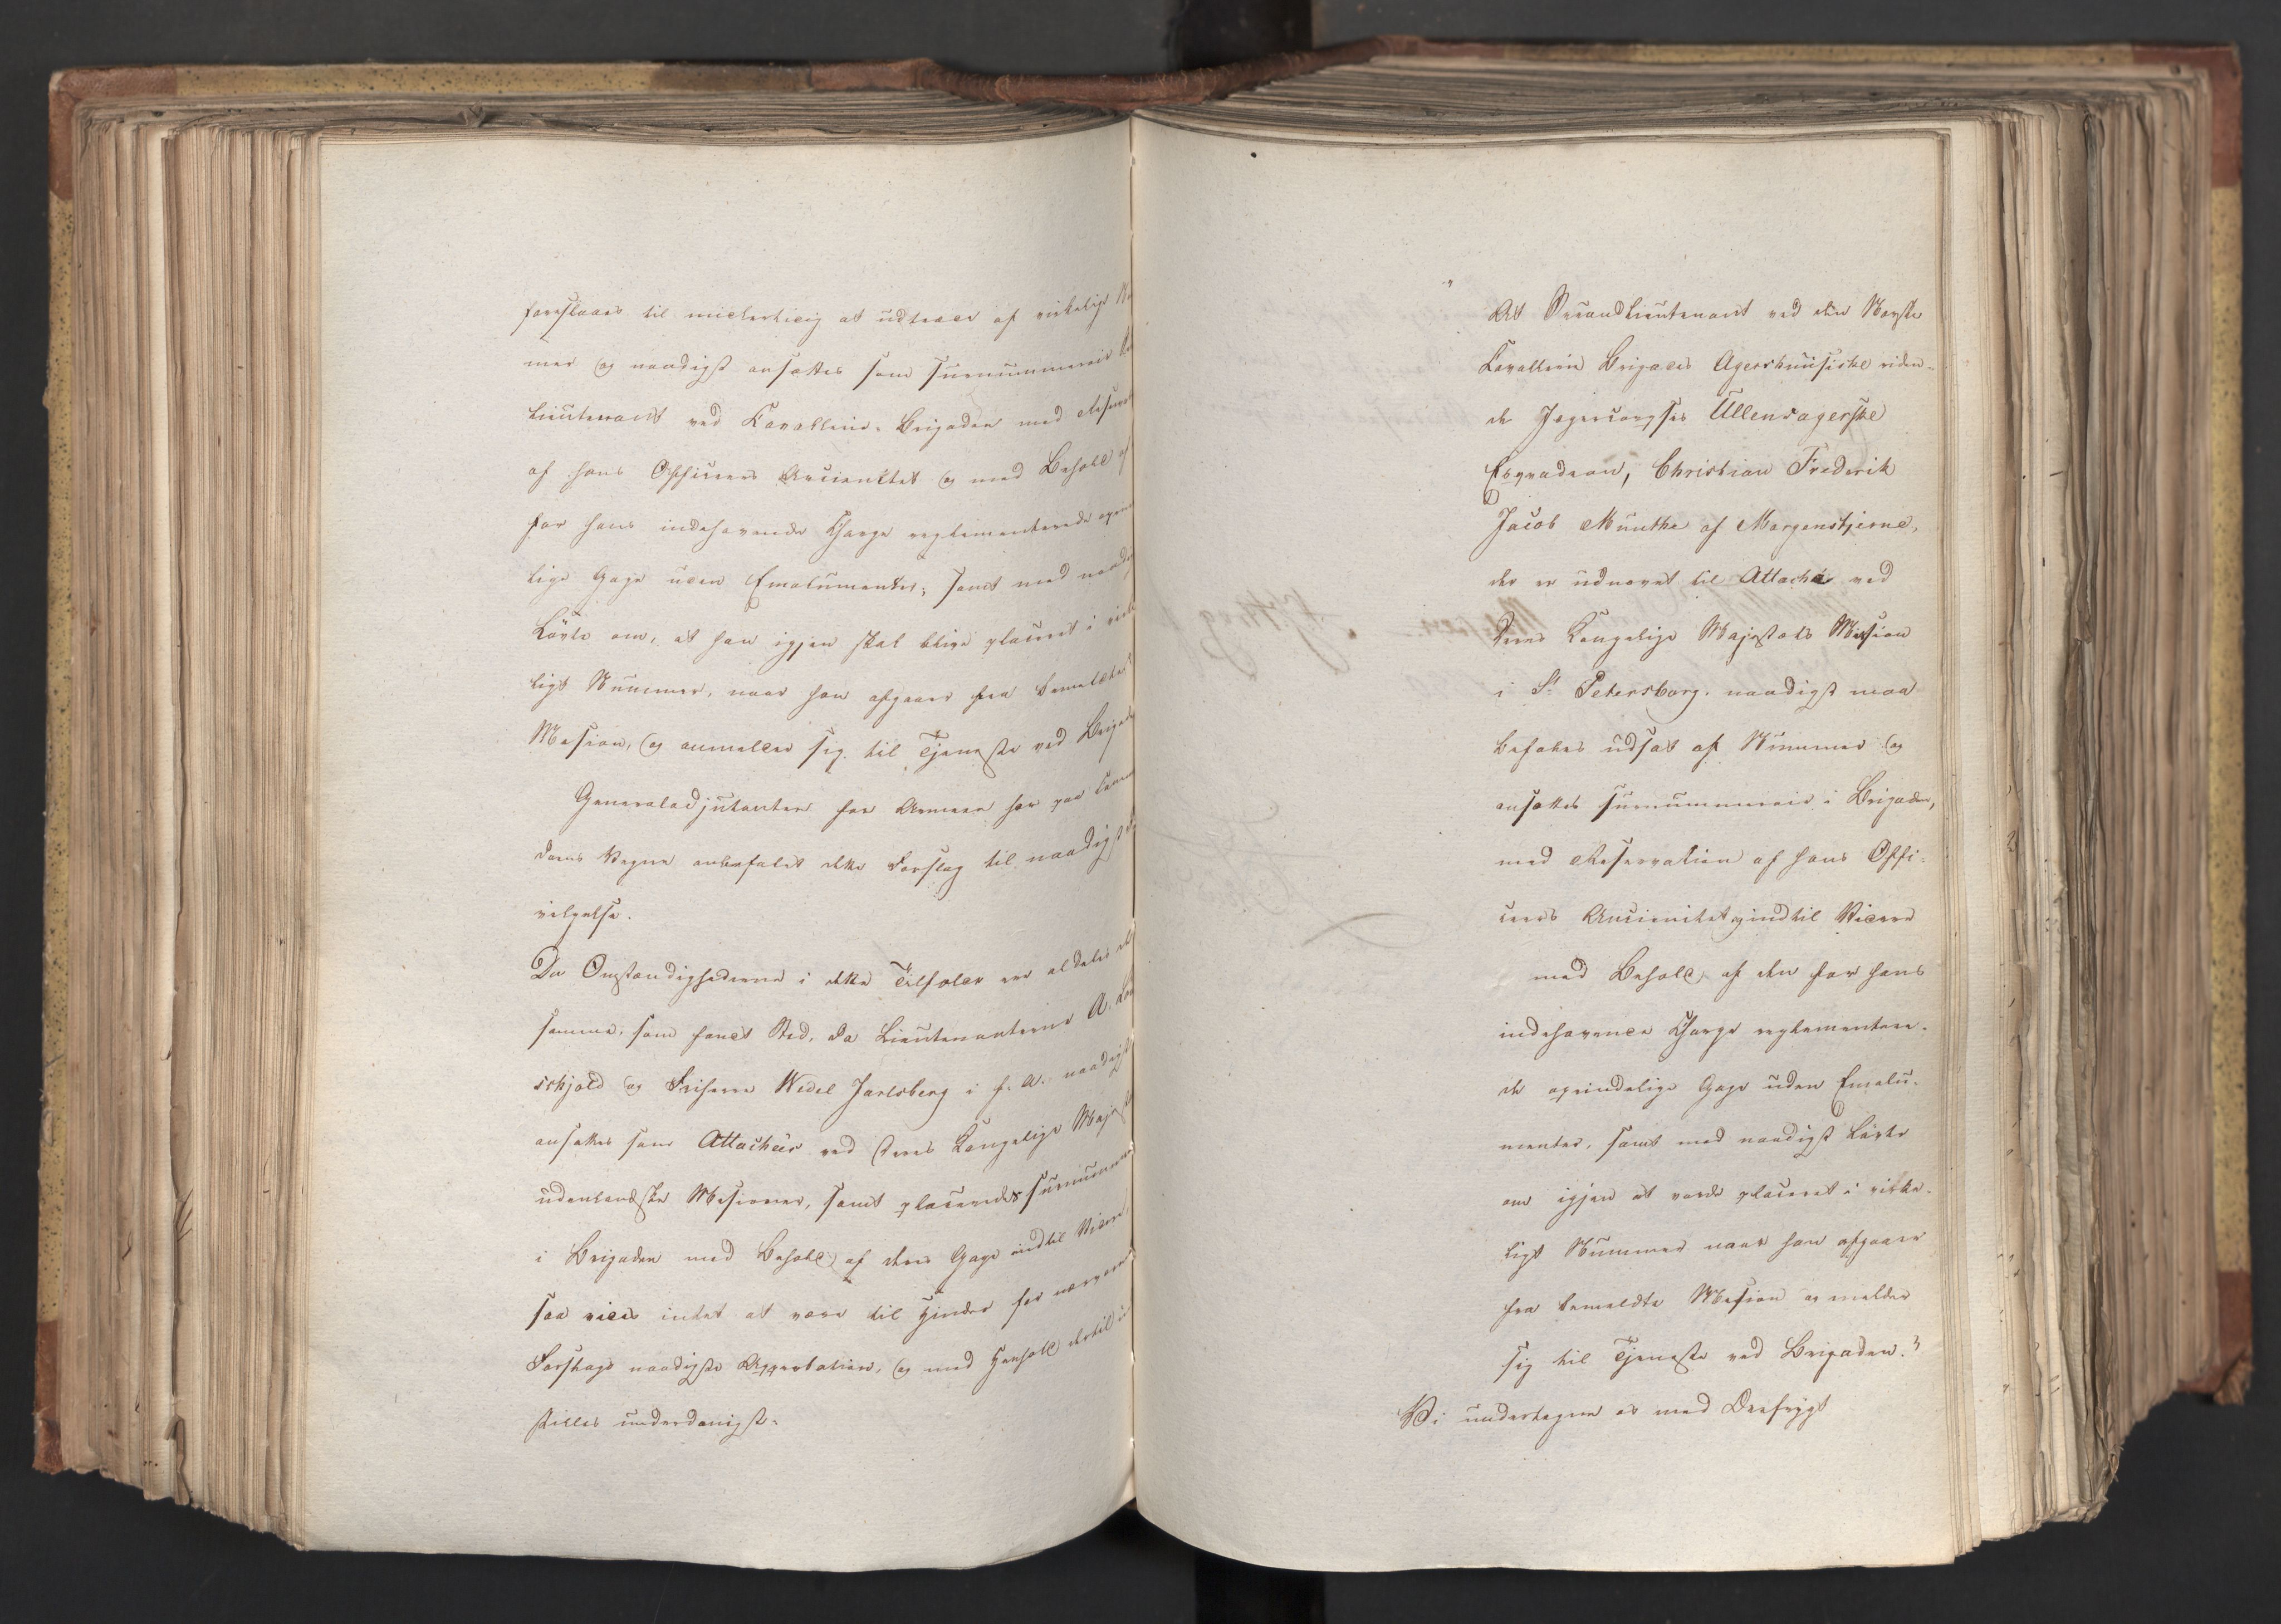 foreslaaes til midlertidig at udtræde af virkeligt Nu
mer og naadigst ansættes som surnummerair
Lieutenant ved Cavallerie-Brigaden med Reserva
af hans Officeers Anciennitet og med Behold af
for hans indehavende Charge reglementerede oprin
lige Gage uden Emolumenter, samt med naadig
Løvte om, at han igjen skal blive placeret i virke
ligt Nummer, naar han afgaaer fra bemeldte
Mission, og anmelder sig til Tjeneste ved Brigade
Generaladjutanten for Armeen har paa
dens Vegne anbefalet dette Forslag til naadigst
vilgelse.
Da Omstændighederne i dette Tilfælde ere aldeles de
samme, som fandt Sted, da Lieutenanterne A. Løv
schjold og Friherre Wedel Jarlsberg i f. A. naadigst
ansattes som Attachéer ved Deres Kongelige Majest
udenlandske Missioner, samt placeredes surnummerai
i Brigaden med Behold af deres Gage indtil Videre,
saa vides intet at være til Hinder for nærværen
Forslags naadigste Approbation, og med Henhold dertil i
stilles underdanigst:
"At Secondlieutenant ved den Norske
Cavallerie Brigades Agershuusiske riden-
de Jægercorpses Ullensagerske
Esqvadron, Christian Frederik
Jacob Munthe af Morgenstjerne,
der er udnævnt til Attaché ved
Deres Kongelige Majestæts Mission
i St Petersborg, naadigst maa
befales udsat af Nummer og
ansættes surnummerair i Brigaden,
med Reservation af hans Offi-
ceers Anciennitet, indtil Videre
med Behold af den for hans
indehavende Charge reglementere-
de oprindelige Gage uden Emolu-
menter, samt med naadigst Løvte
om igjen at vorde placeret i virke-
ligt Nummer naar han afgaaer
fra bemeldte Mission og melder
sig til Tjeneste ved Brigaden."
Vi undertegne os med Ærefrygt